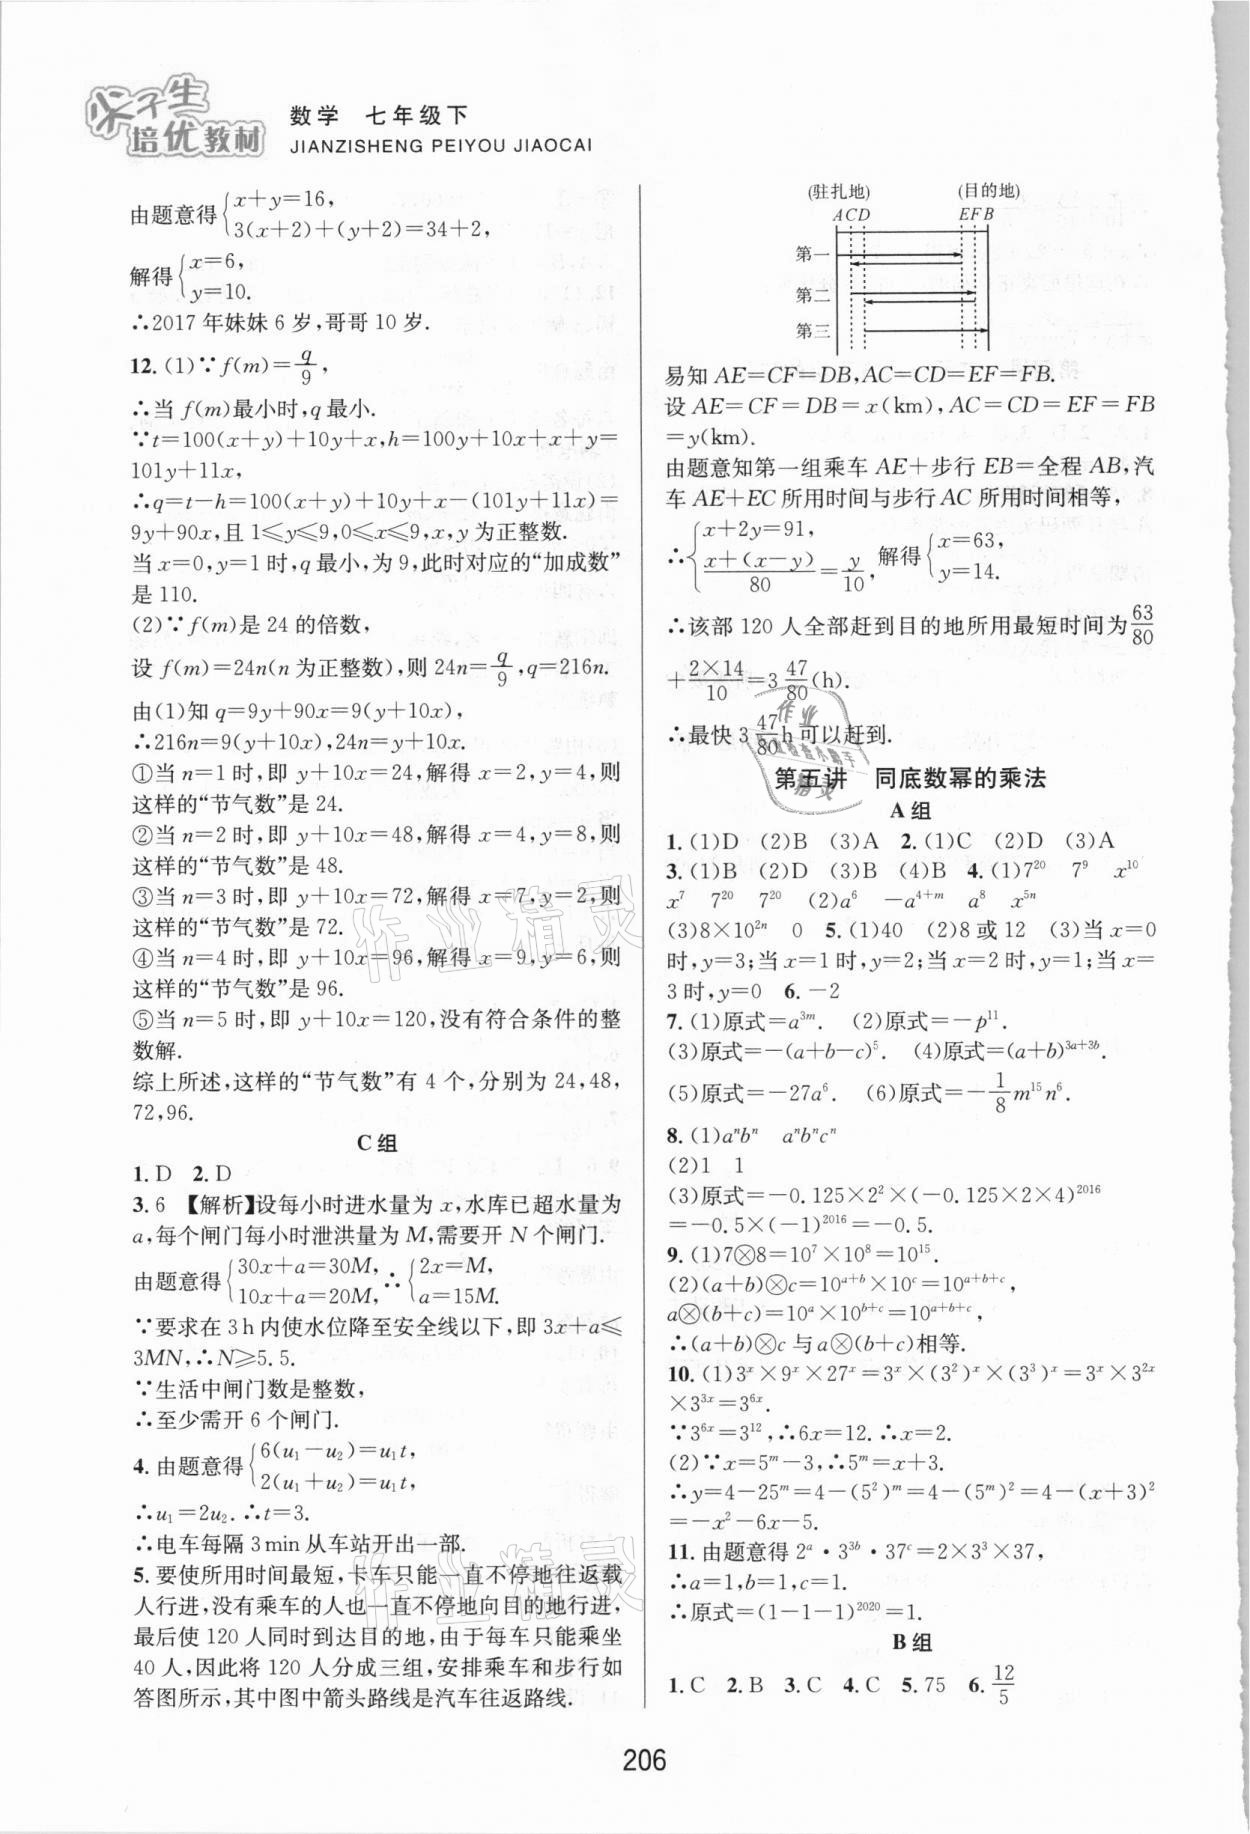 尖子生
培优教材
数学 七年级下
JIANZISHENG PEIYOU JIAOCAI
由题意得{x+y=16,
3(x+2)+(y+2)=34+2,
解得{x=6,
y=10.
∴2017年妹妹6岁,哥哥10岁.
12.(1)∵f(m)=q/9,
∴当f(m)最小时,q最小.
∵t=100(x+y)+10y+x,h=100y+10x+x+y=
101y+11x,
∴q=t-h=100(x+y)+10y+x-(101y+11x)=
9y+90x,且1≤y≤9,0≤x≤9,x,y为正整数.
当x=0,y=1时,q最小,为9,此时对应的“加成数”
是110.
(2)∵f(m)是24的倍数,
设f(m)=24n(n为正整数),则24n=q/9,q=216n.
由(1)知q=9y+90x=9(y+10x),
∴216n=9(y+10x),24n=y+10x.
①当n=1时,即y+10x=24,解得x=2,y=4,则
这样的“节气数”是24.
②当n=2时,即y+10x=48,解得x=4,y=8,则
这样的“节气数”是48.
③当n=3时,即y+10x=72,解得x=7,y=2,则
这样的“节气数”是72.
④当n=4时,即y+10x=96,解得x=9,y=6,则
这样的“节气数”是96.
⑤当n=5时,即y+10x=120,没有符合条件的整
数解.
综上所述,这样的“节气数”有4个,分别为24,48,
72,96.
C组
1.D 2.D
3.6 【解析】设每小时进水量为x,水库已超水量为
a,每个闸门每小时泄洪量为M,需要开N个闸门.
由题意得{30x+a=30M, ∴{2x=M,
10x+a=20M, a=15M.
∵要求在3h内使水位降至安全线以下,即3x+a≤
3MN,∴N≥5.5.
∵生活中闸门数是整数,
∴至少需开6个闸门.
4.由题意得{6(u₁-u₂)=u₁t,
2(u₁+u₂)=u₁t,
∴u₁=2u₂.∴t=3.
∴电车每隔3min从车站开出一部.
5.要使所用时间最短,卡车只能一直不停地往返载
人行进,没有乘车的人也一直不停地向目的地行进,
最后使120人同时到达目的地,由于每车只能乘坐
40人,因此将120人分成三组,安排乘车和步行如
答图所示,其中图中箭头路线是汽车往返路线.
(驻扎地) (目的地)
A C D E F B
第一
第二
第三
易知AE=CF=DB,AC=CD=EF=FB.
设AE=CF=DB=x(km),AC=CD=EF=FB
=y(km).
由题意知第一组乘车AE+步行EB=全程AB,汽
车AE+EC所用时间与步行AC所用时间相等,
∴{x+2y=91,
(x+(x-y))/80=y/10, 解得{x=63,
y=14.
∴该部120人全部赶到目的地所用最短时间为63/80
+(2×14)/10=3 47/80(h).
∴最快3 47/80 h可以赶到.
第五讲 同底数幂的乘法
A组
1.(1)D (2)B (3)A 2.(1)C (2)D (3)A
3.(1)B (2)D (3)B (4)B 4.(1)7²⁰ 7⁹ x¹⁰
x⁷ 7²⁰ 7²⁰ (2)a⁶ -a⁴⁺ᵐ a⁸ x⁵ⁿ
(3)8×10²ⁿ 0 5.(1)40 (2)8或12 (3)当x=0
时,y=3;当x=1时,y=2;当x=2时,y=1;当x=
3时,y=0 6.-2
7.(1)原式=a³ᵐ. (2)原式=-p¹¹.
(3)原式=-(a+b-c)⁵. (4)原式=(a+b)^(3a+3b).
(5)原式=-27a⁶. (6)原式=-1/8 m¹⁵n⁶.
8.(1)aⁿbⁿ aⁿbⁿcⁿ
(2)1 1
(3)原式=-0.125×2²×(-0.125×2×4)²⁰¹⁶
=-0.5×(-1)²⁰¹⁶=-0.5.
9.(1)7⊗8=10⁷×10⁸=10¹⁵.
(2)(a+b)⊗c=10^(a+b)×10^c=10^(a+b+c),
a⊗(b+c)=10^a×10^(b+c)=10^(a+b+c),
∴(a+b)⊗c与a⊗(b+c)相等.
10.(1)3ˣ×9ˣ×27ˣ=3ˣ×(3²)ˣ×(3³)ˣ=3ˣ×3²ˣ
×3³ˣ=3⁶ˣ.
∵3⁶ˣ=3¹²,∴6x=12.∴x=2.
(2)∵x=5ᵐ-3,∴5ᵐ=x+3.
∴y=4-25ᵐ=4-(5²)ᵐ=4-(5ᵐ)²=4-(x+3)²
=-x²-6x-5.
11.由题意得2^a·3^(3b)·37^c=2×3³×37,
∴a=1,b=1,c=1.
∴原式=(1-1-1)²⁰²⁰=1.
B组
1.C 2.B 3.C 4.C 5.75 6.12/5
206
作业精灵
作业精灵